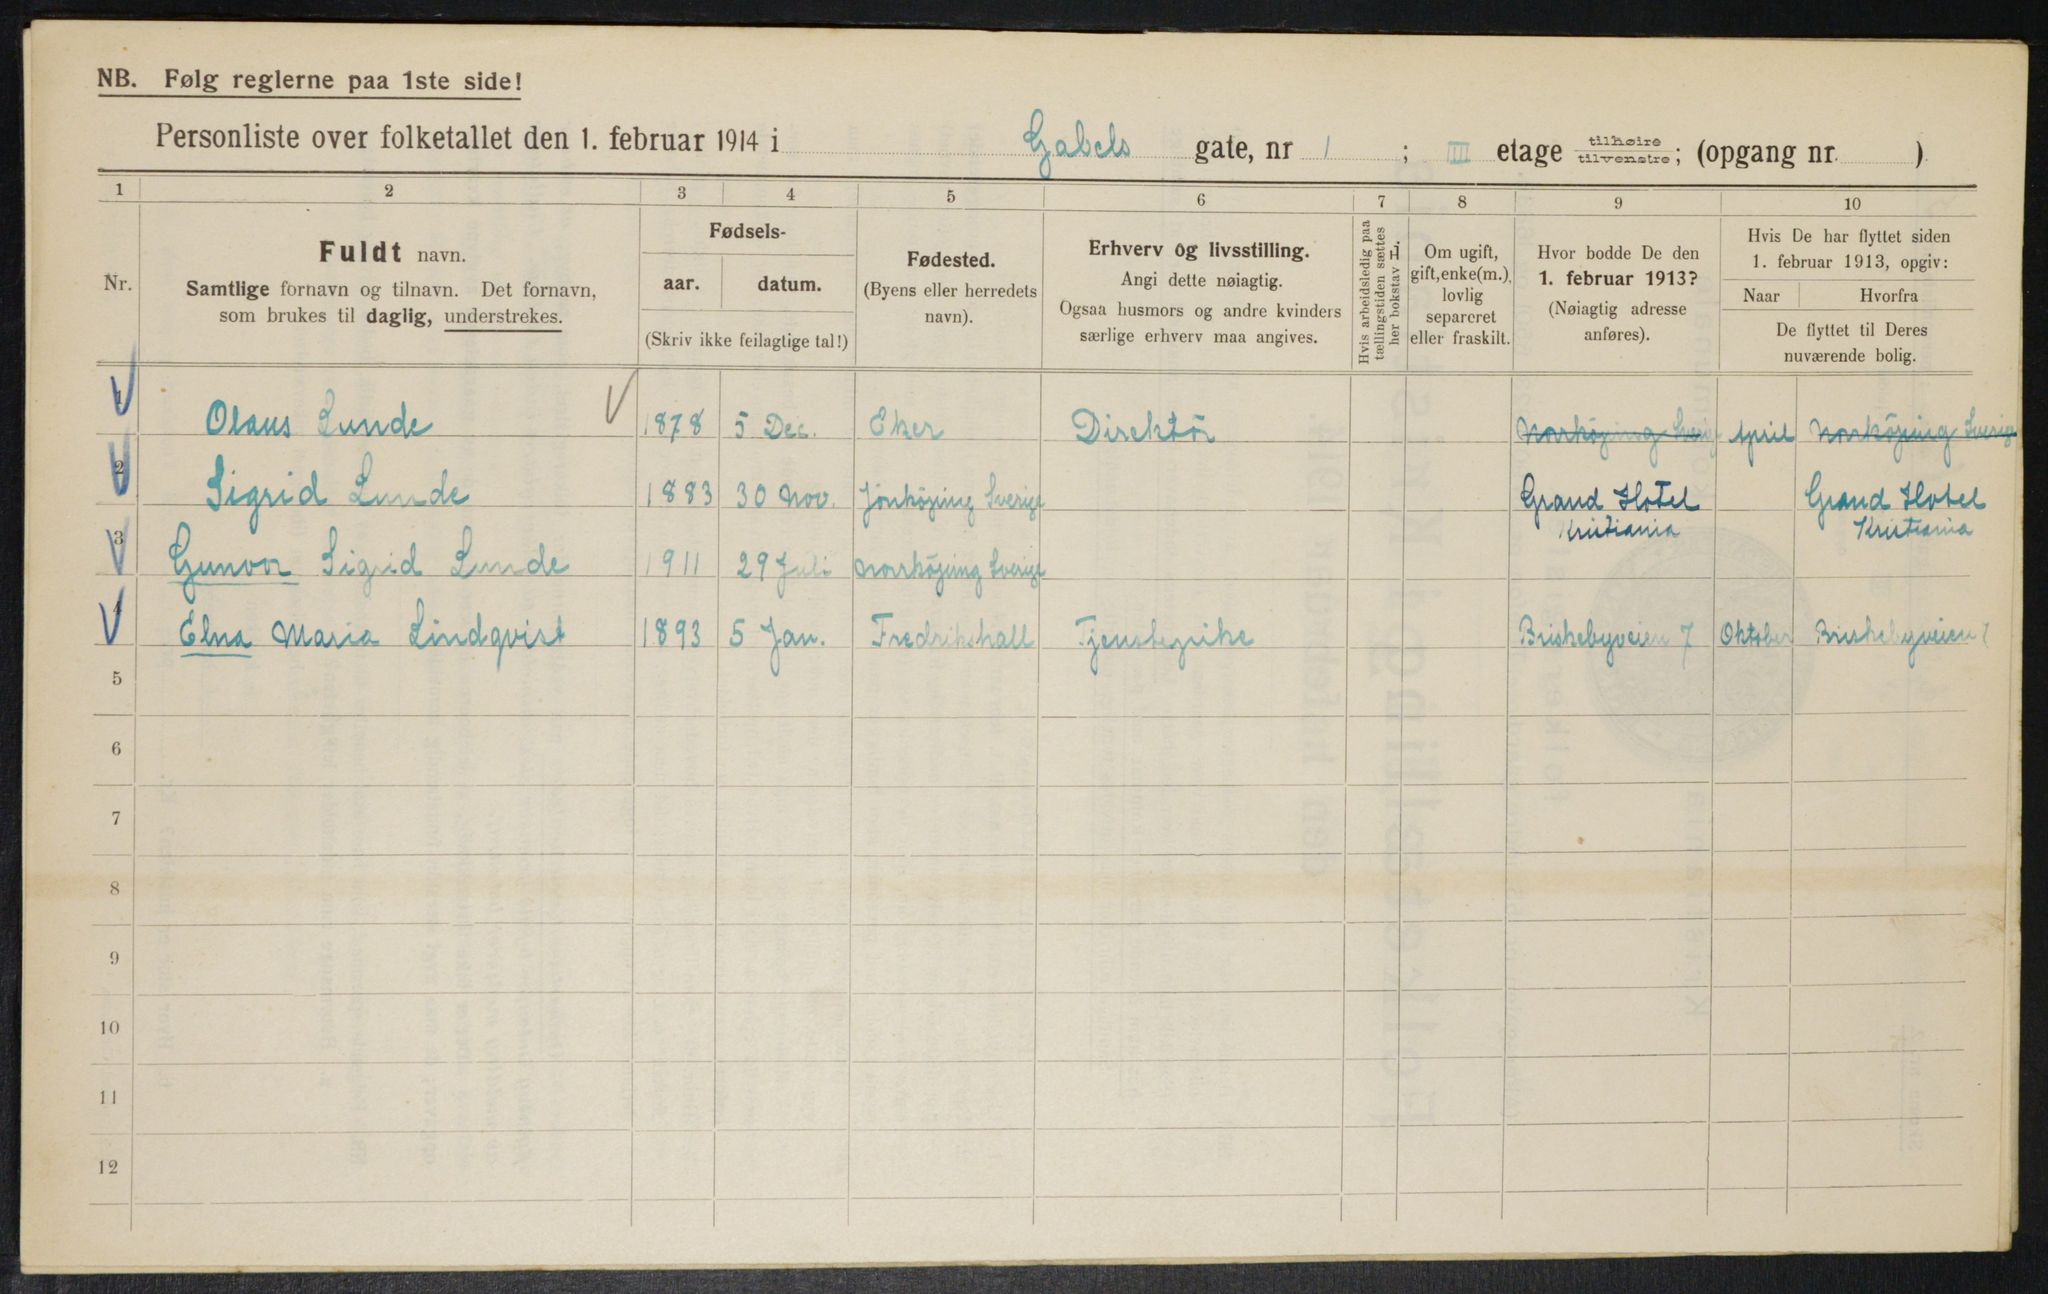 NB. Følg reglerne paa 1ste side!
Personliste over folketallet den 1. februar 1914 i Gabels gate, nr 1 ; III etage tilhøire tilvenstre; (opgang nr. )
1 2 3 4 5 6 7 8 9 10
Nr.
Fuldt navn.
Samtlige fornavn og tilnavn. Det fornavn,
som brukes til daglig, understrekes.
Fødsels-
aar. datum.
(Skriv ikke feilagtige tal!)
Fødested.
(Byens eller herredets
navn).
Erhverv og livsstilling.
Angi dette nøiagtig.
Ogsaa husmors og andre kvinders
særlige erhverv maa angives.
Hvis arbeidsledig paa
tællingstiden sættes
her bokstav L.
Om ugift,
gift, enke(m.),
lovlig
separeret
eller fraskilt.
Hvor bodde De den
1. februar 1913?
(Nøiagtig adresse
anføres).
Hvis De har flyttet siden
1. februar 1913, opgiv:
Naar Hvorfra
De flyttet til Deres
nuværende bolig.
1 Olaus Lunde 1878 5 Dec. Eker Direktör Norrköping Sverige April Norrköping Sverige
2 Sigrid Lunde 1883 30 Nov. Jönköping Sverige Grand Hotel Kristiania Grand Hotel Kristiania
3 Gunvor Sigrid Lunde 1911 29 Juli Norrköping Sverige
4 Elna Maria Lindqvist 1893 5 Jan. Fredrikshall Tjenstepike Briskebyveien 7 Oktober Briskebyveien 7
5
6
7
8
9
10
11
12